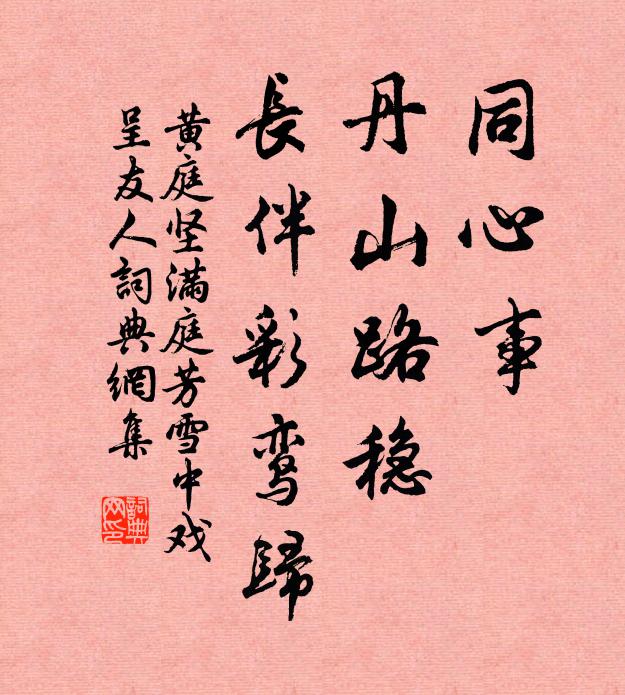 同心事
丹山路稳
長伴彩鸾歸
黄庭坚满庭芳雪中戏
呈友人詞典網集
詞典
网印